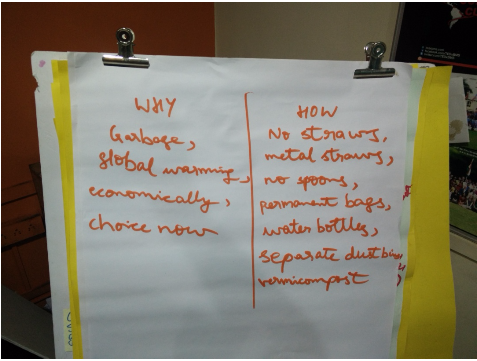 WHY
Garbage,
global warming,
economically,
choice now
HOW
No straws,
metal straws,
no spoons,
permanent bags,
water bottles,
separate dust bins
vermicompost